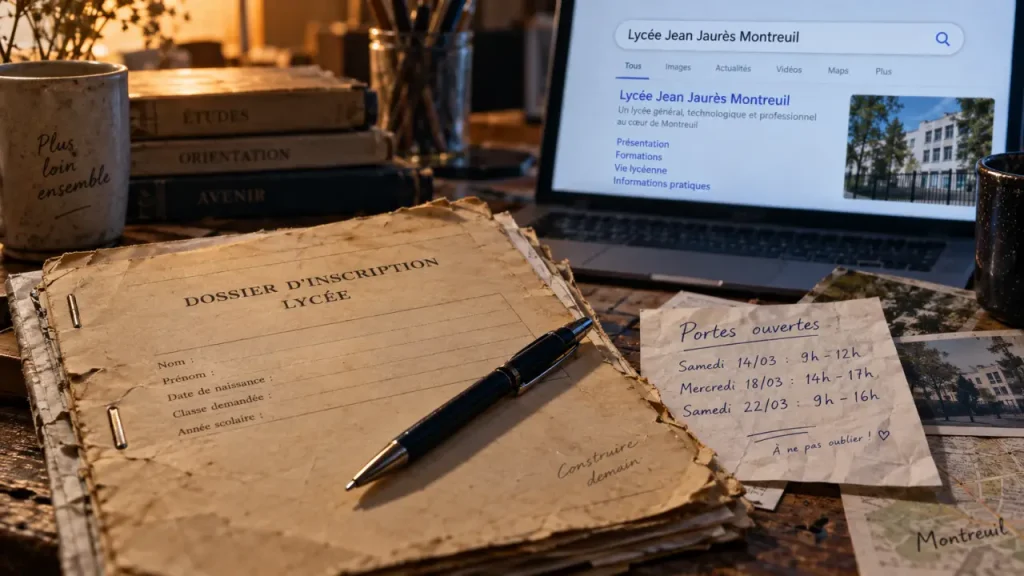 Plus
loin
ensemble
ÉTUDES
ORIENTATION
AVENIR
DOSSIER D'INSCRIPTION
LYCÉE
Nom :
Prénom :
Date de naissance :
Classe demandée :
Année scolaire :
Construire
demain
Lycée Jean Jaurès Montreuil
Tous Images Actualités Vidéos Maps Plus
Lycée Jean Jaurès Montreuil
Un lycée général, technologique et professionnel
au cœur de Montreuil
Présentation
Formations
Vie lycéenne
Informations pratiques
Portes ouvertes
Samedi 14/03 : 9h - 12h
Mercredi 18/03 : 14h - 17h
Samedi 22/03 : 9h - 16h
À ne pas oublier ! ♡
Montreuil